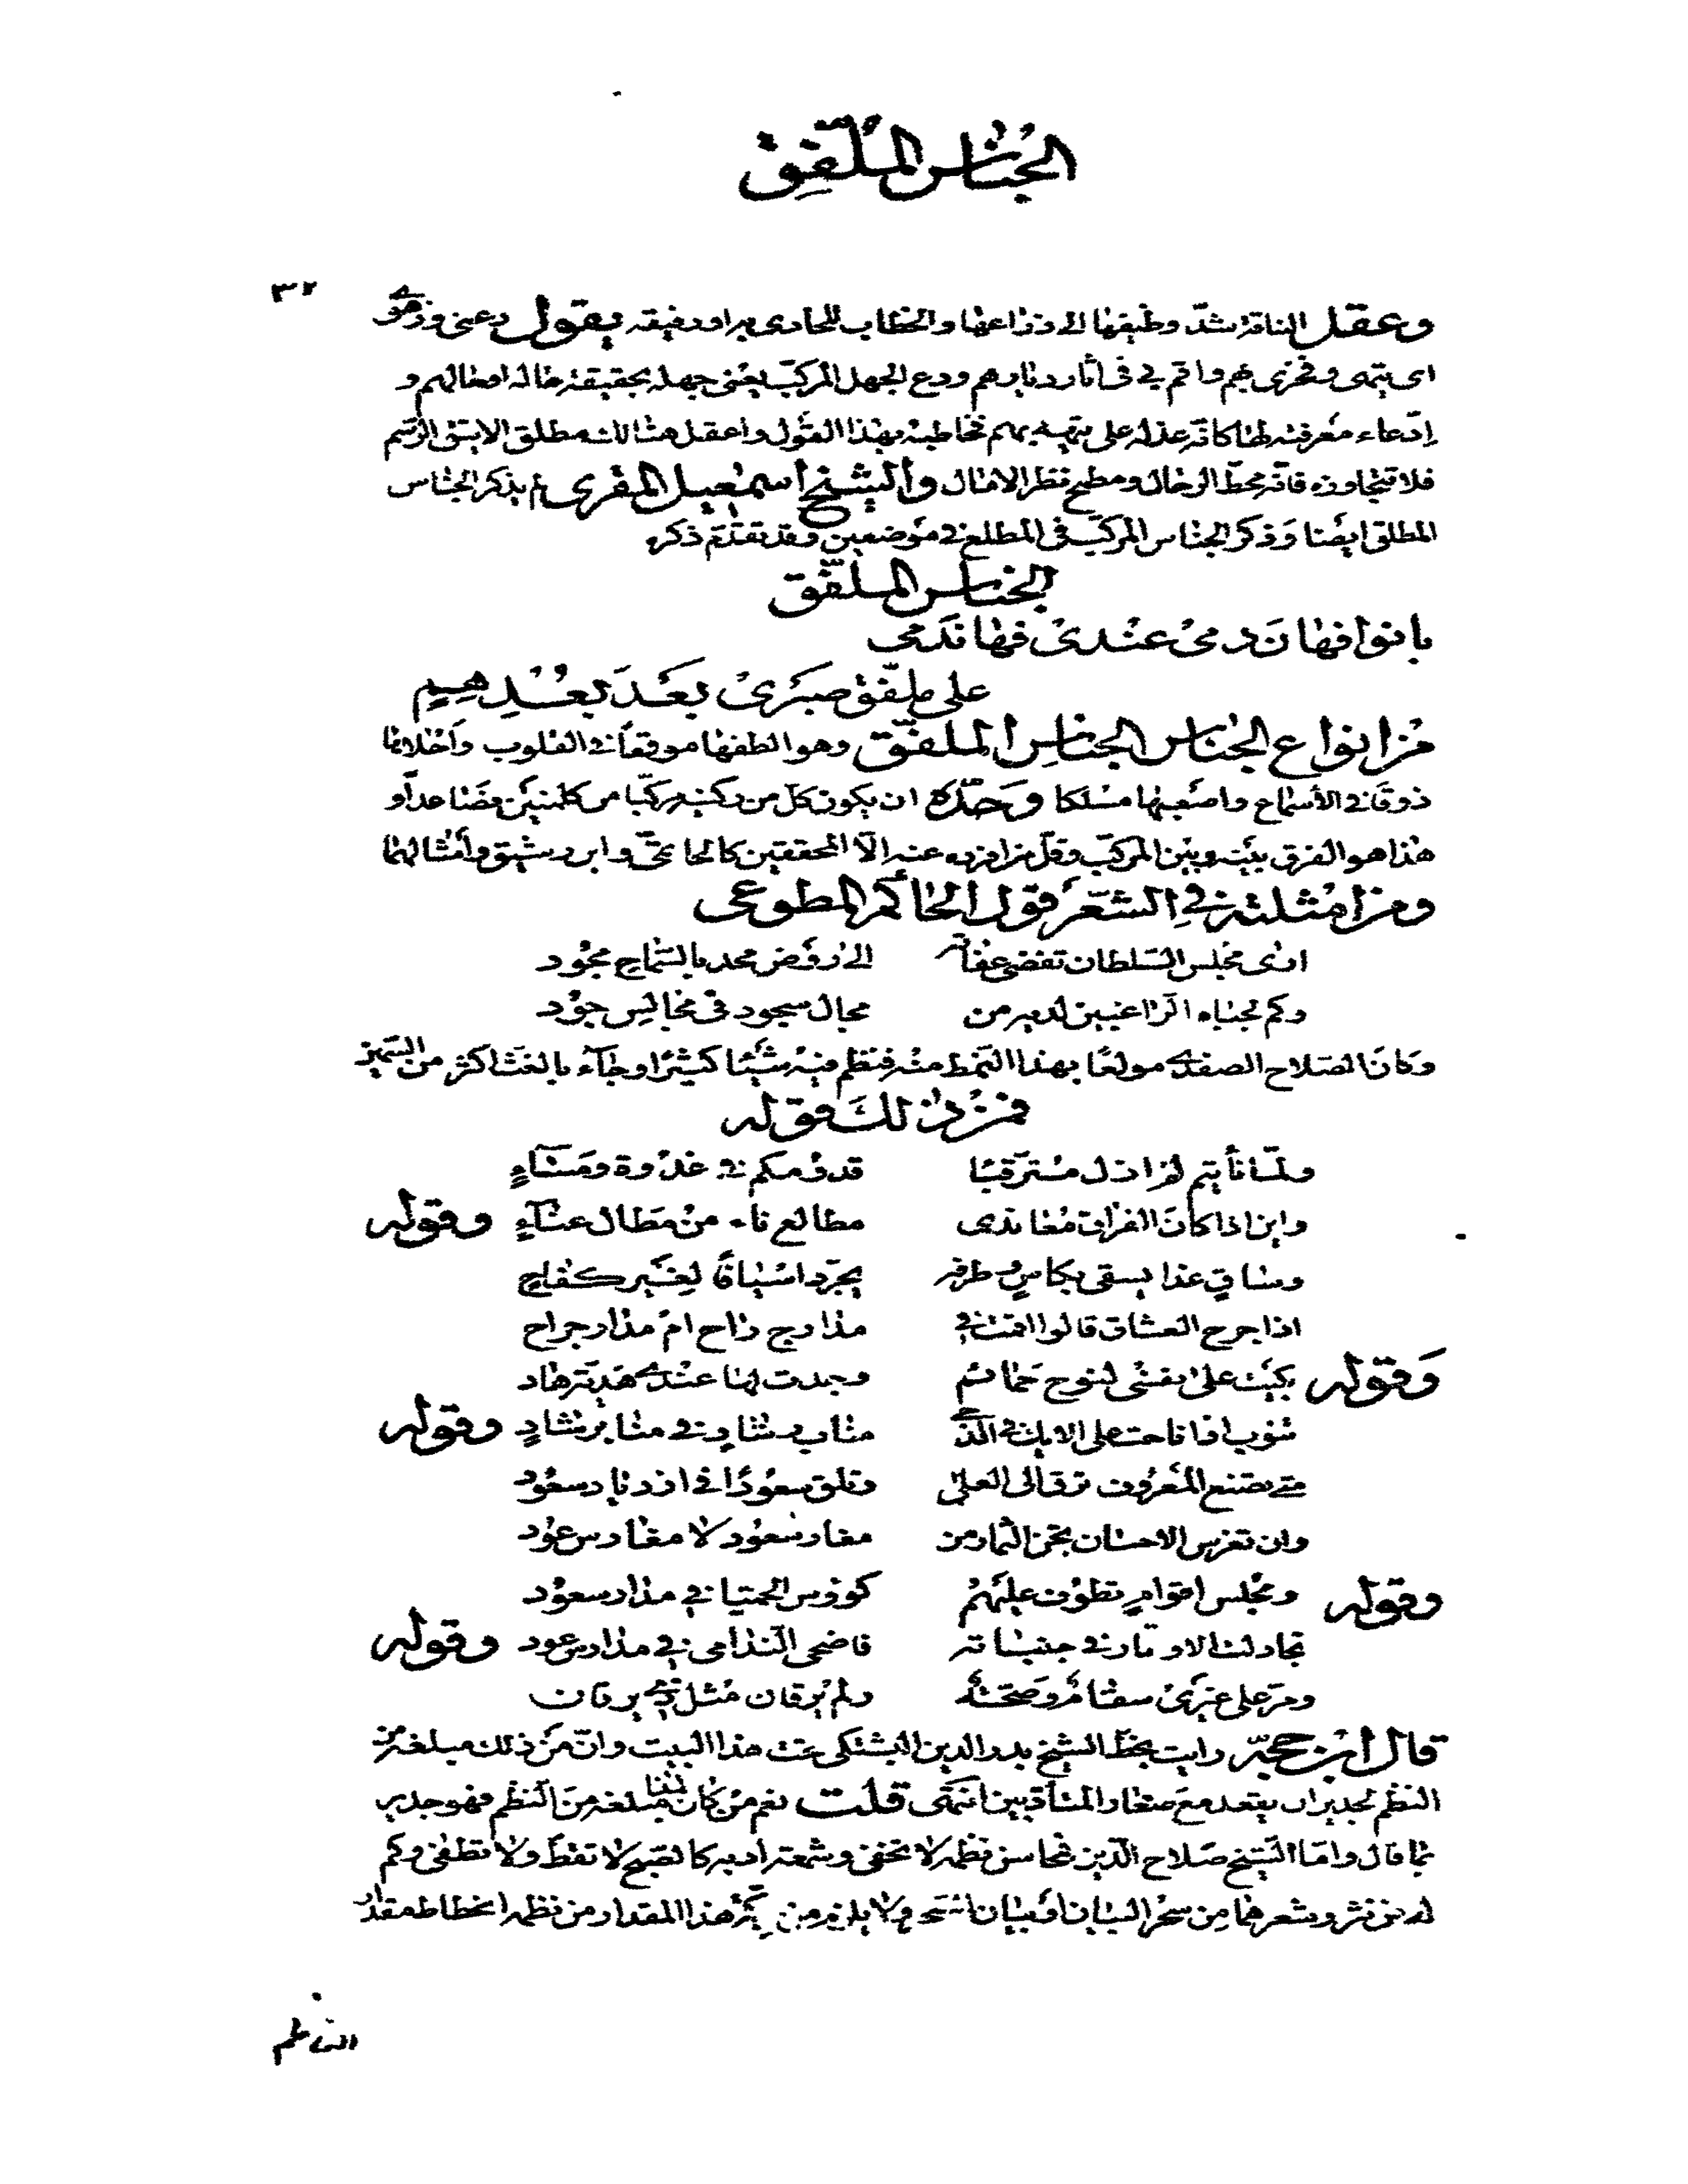 الجناس الملفق
٣٢
وعقل الناقة شدّ وظيفها الى ذراعها والخطاب للحادى به او رفيقه يقول دعنى وزهوى
اى بتيهى وفخرى بهم واقم لى فى آثار ديارهم ودع الجهل المركّب يعنى جهله بحقيقة حاله افعالهم و
ادّعاء معرفته لها كانّه عذله على تتيّمه بهم فخاطبه بهذا القول واعقل هنالك مطلق الاينق الرّسّم
فلا تتجاوزه فانّه محطّ الرحال ومطمح نظر الامال والشيخ اسمٰعيل المقرى لم يذكر الجناس
المطلق ايضا وذكر الجناس المركّب فى المطلع فى موضعين وقد تقدّم ذكره
الجناس الملفّق
بانوا فهان دمى عندى فها ندمى
على ملفّق صبرى بعد بعدهم
من انواع الجناس الجناس الملفّق وهو الطفها موقعاً فى القلوب واحلاها
ذوقا فى الأسماع واصعبها مسلكا وحدّه ان يكون كلّ من ركنيه مركّبا من كلمتين فصاعدا و
هذا هو الفرق بينه وبين المركّب وقلّ من افرده عنه الّا المحققين كالحاتمىّ وابن رشيق وامثالهما
ومن امثلته فى الشعر قول الحاكم المطوعى
ارى مجلس السّلطان تفضى عفاته الى روض مجد بالسّماح مجود
وكم لجباه الرّاغبين لديه من مجال سجود فى مجالس جود
وكان الصّلاح الصفدى مولعًا بهذا النّمط منه فنظم فيه شيئا كثيرا وجاء بالغثّ اكثر من السّمين
فمن ذلك قوله
ولمّا نأيتم لم ازل مترقّبا قدومكم فى غدوة ومساء
واين اذا كان الفراق معاندى مطالع ناء من مطال عناء وقوله
وساق غدا يسقى بكاس وطرفه يجرّد اسيافا لغير كفاح
اذا جرح العشاق قالوا اقمت فى مدارج راح ام مدار جراح
وقوله بكيت على نفسى لنوح حمائم وجدت لها عندى هديّة هاد
تنوب اذا ناحت على الايك فى الذى مناب رشاد فى منابر شاد وقوله
متى يصنع المعروف ترق الى العلى وتلق سعودًا فى ازدياد سعود
وان تغرس الاحسان تجن الثمار من مغار سعود لا مغارس عود
وقوله ومجلس اقوام تطوف عليهم كؤوس الحميا فى مدار سعود
تجادلت الاوتار فى جنباته فاضحى النّدامى فى مدارس عود وقوله
ومرّ على غيرى سقام وصحة ولم يرقان مثل ذى يرقان
قال ابن حجّة رايت بخطّ الشيخ بدر الدين البشتكى تحت هذا البيت وانّ من ذلك مبلغه من
النظم لجدير ان يقعد مع صغار المتأدبين انتهى قلت نعم من كان هذا مبلغه من النّظم فهو جدير
بما قال وامّا الشيخ صلاح الدّين فمحاسن نظمه لا تخفى وشمعة ادبه كالصبح لا تقطّ ولا تطفى وكم
له من نثر وشعر هما من سحر البيان او بيان السحر ولا يلزم من نزر هذا المقدار من نظمه انحطاط مقدار
الناظم